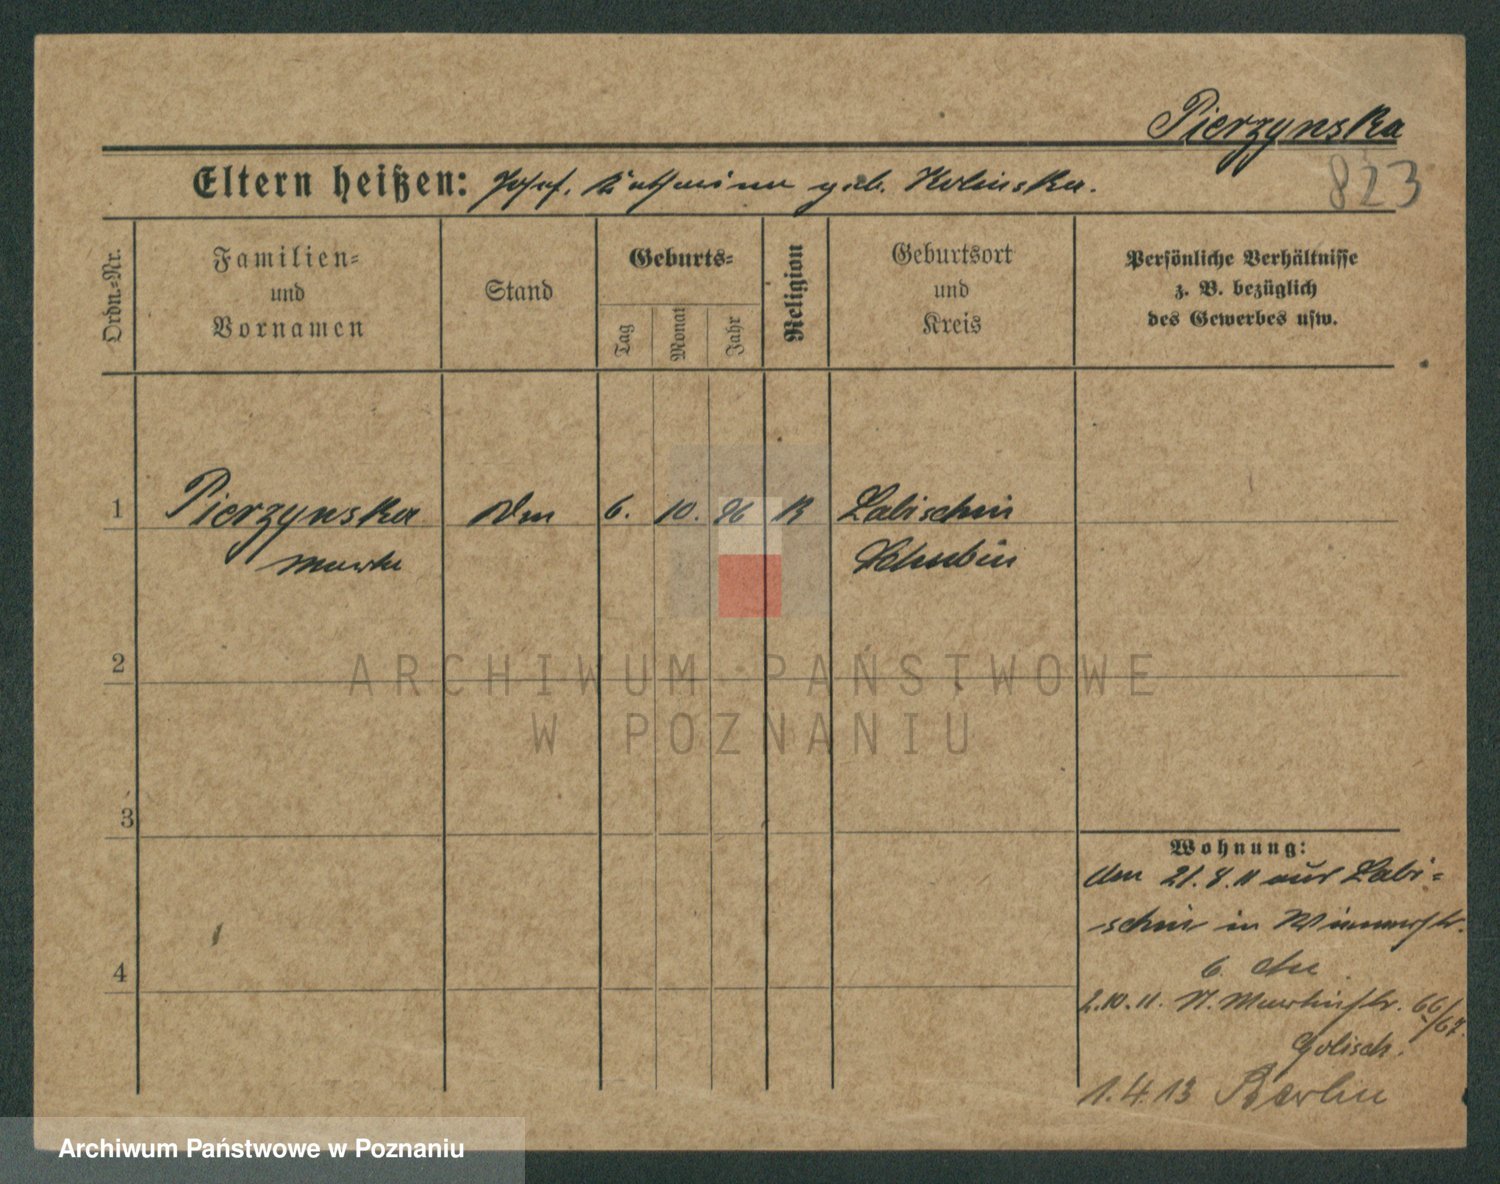 Pierzynska
Eltern heißen: Josef, Katharina geb. Kolinska.
823
Ordn.-Nr.
Familien- und Vornamen
Stand
Geburts-
Tag
Monat
Jahr
Religion
Geburtsort und Kreis
Persönliche Verhältnisse
z. B. bezüglich
des Gewerbes usw.
1 Pierzynska 6. 10. 96 K Labischin
Schubin
2
3
4
Wohnung:
21. 8. 11 aus Labi-
schin in
6.
2.10.11. St. Martinstr. 66/67.
1.4.13 Berlin
ARCHIWUM PAŃSTWOWE
W POZNANIU
Archiwum Państwowe w Poznaniu